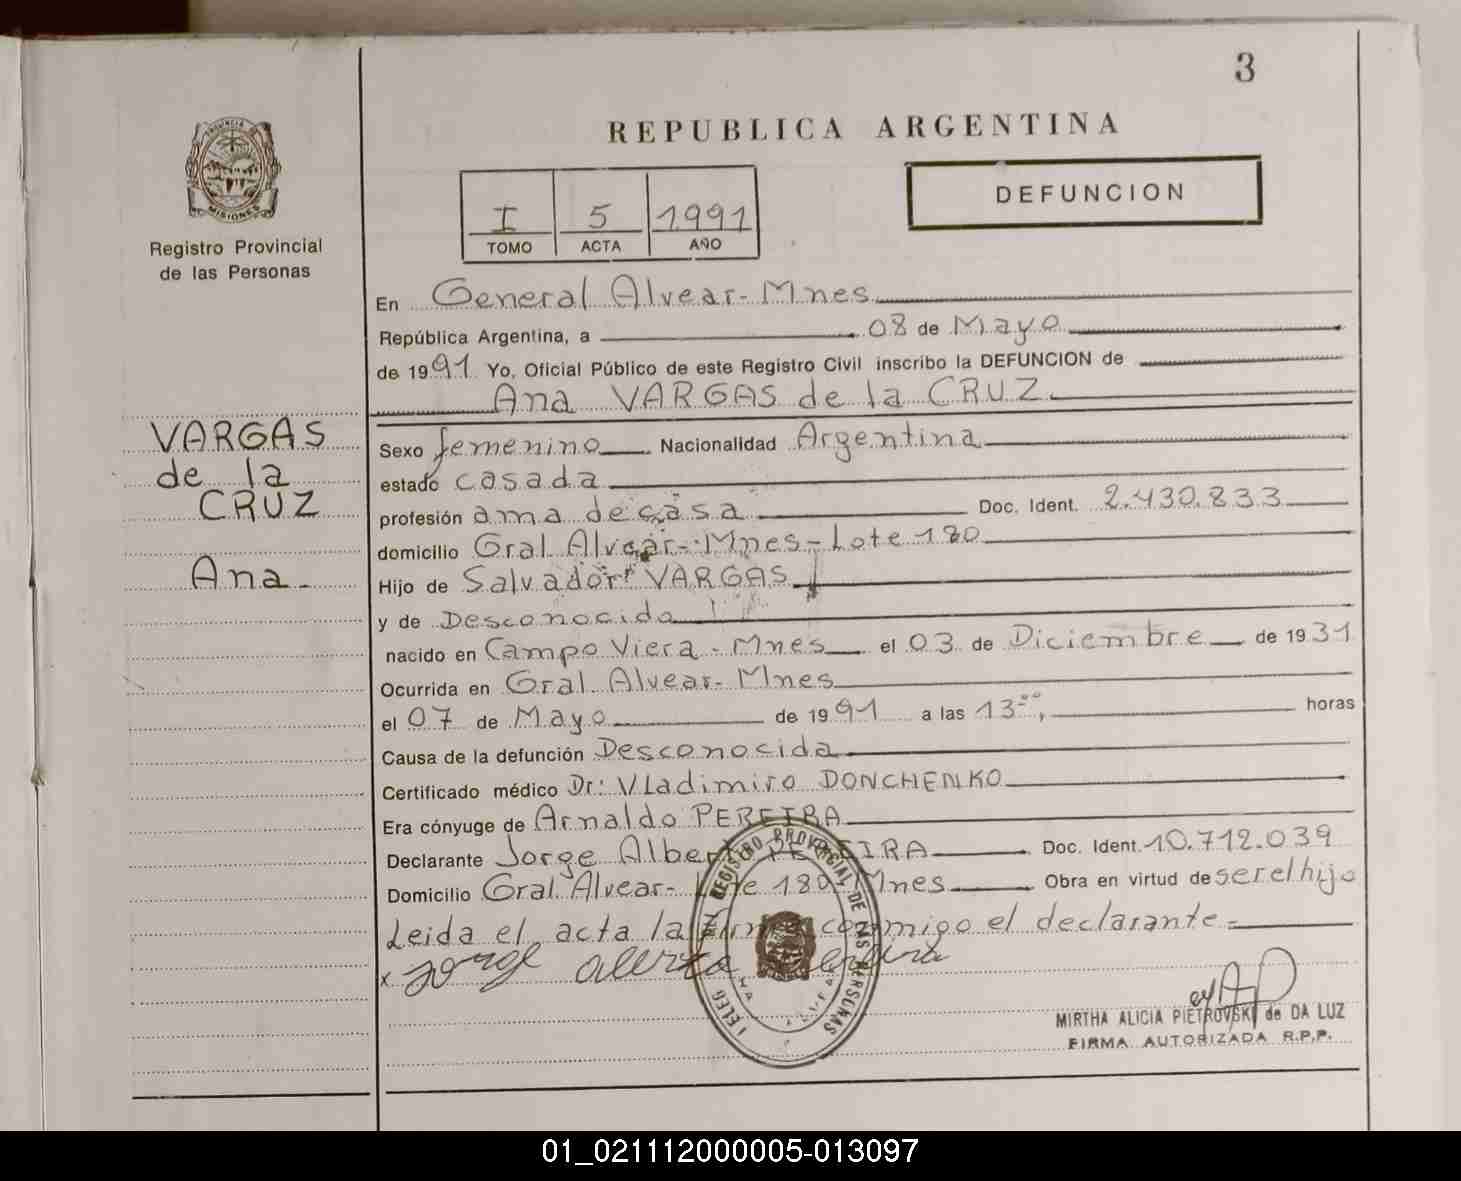 3
REPUBLICA ARGENTINA
PROVINCIA
MISIONES
Registro Provincial
de las Personas
I 5 1991
TOMO ACTA AÑO
DEFUNCION
En General Alvear - Mnes
República Argentina, a 08 de Mayo
de 1991 Yo, Oficial Público de este Registro Civil inscribo la DEFUNCION de
Ana VARGAS de la CRUZ
VARGAS
de la
CRUZ
Ana -
Sexo femenino Nacionalidad Argentina
estado casada
profesión ama de casa Doc. Ident. 2.430.833
domicilio Gral Alvear - Mnes - Lote 180
Hijo de Salvador VARGAS
y de Desconocida
nacido en Campo Viera - Mnes el 03 de Diciembre de 1931
Ocurrida en Gral Alvear - Mnes
el 07 de Mayo de 1991 a las 13°°, horas
Causa de la defunción Desconocida
Certificado médico Dr: Vladimiro DONCHENKO
Era cónyuge de Arnaldo PEREIRA
Declarante Jorge Alberto PEREIRA Doc. Ident. 10.712.039
Domicilio Gral. Alvear - Lote 180 Mnes Obra en virtud de ser el hijo
Leida el acta la firma conmigo el declarante =
x Jorge Pereira
REGISTRO PROVINCIAL DE LAS PERSONAS
MIRTHA ALICIA PIETROVSKI de DA LUZ
FIRMA AUTORIZADA R.P.P.
01_021112000005-013097